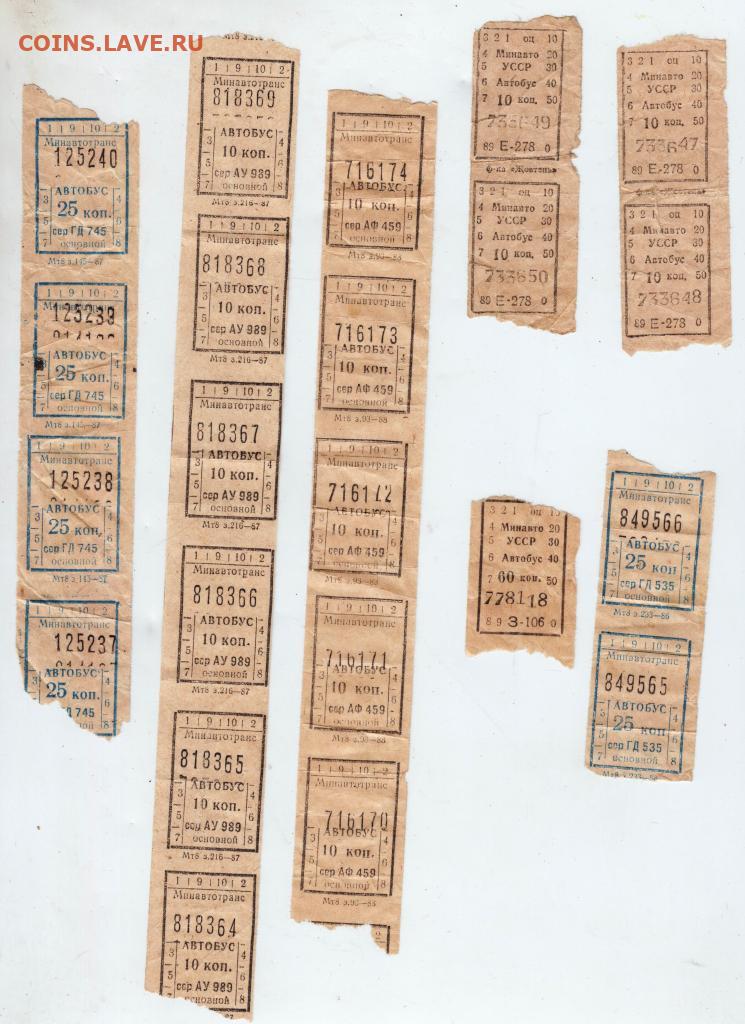 COINS.LAVE.RU
1 9 10 2
Минавтотранс
125240
АВТОБУС
3 25 коп. 4
5 сер ГД 745 6
7 основной 8
Мт8 з.145—87
1 9 10 2
125239
АВТОБУС
3 25 коп. 4
5 сер ГД 745 6
7 основной 8
Мт8 з.145—87
1 9 10 2
Минавтотранс
125238
АВТОБУС
3 25 коп. 4
5 сер ГД 745 6
7 основной 8
Мт8 з.145—87
1 9 10 2
Минавтотранс
125237
АВТОБУС
3 25 коп. 4
745 6
8
Мт8 з.216—87
1 9 10 2
818369
АВТОБУС
3 10 коп. 4
5 сер АУ 989 6
7 основной 8
Мт8 з.216—87
1 9 10 2
Минавтотранс
818368
АВТОБУС
3 10 коп. 4
5 сер АУ 989 6
7 основной 8
Мт8 з.216—87
1 9 10 2
Минавтотранс
818367
АВТОБУС
3 10 коп. 4
5 сер АУ 989 6
7 основной 8
Мт8 з.216—87
1 9 10 2
Минавтотранс
818366
АВТОБУС
3 10 коп. 4
5 сер АУ 989 6
7 основной 8
Мт8 з.216—87
1 9 10 2
Минавтотранс
818365
АВТОБУС
3 10 коп. 4
5 сер АУ 989 6
7 основной 8
Мт8 з.216—87
1 9 10 2
Минавтотранс
818364
АВТОБУС
3 10 коп. 4
5 сер АУ 989 6
основной 8
1 9 10 2
Минавтотранс
716174
АВТОБУС
3 10 коп. 4
5 сер АФ 459 6
7 основной 8
Мт8 з.93—88
1 9 10 2
Минавтотранс
716173
АВТОБУС
3 10 коп. 4
5 сер АФ 459 6
7 основной 8
Мт8 з.93—88
1 9 10 2
Минавтотранс
716172
АВТОБУС
3 10 коп. 4
5 сер АФ 459 6
7 основной 8
Мт8 з.93—88
1 9 10 2
Минавтотранс
716171
АВТОБУС
3 10 коп. 4
5 сер АФ 459 6
7 основной 8
Мт8 з.93—88
1 9 10 2
Минавтотранс
716170
АВТОБУС
3 10 коп. 4
5 сер АФ 459 6
7 основной 8
Мт8 з.93—88
3 2 1 оц 10
4 Минавто 20
5 УССР 30
6 Автобус 40
7 10 коп. 50
733649
89 Е-278 0
ф-ка «Жовтень»
3 2 1 оц 10
4 Минавто 20
5 УССР 30
6 Автобус 40
7 10 коп. 50
733650
89 Е-278 0
3 2 1 оц 10
4 Минавто 20
5 УССР 30
6 Автобус 40
7 10 коп. 50
733647
89 Е-278 0
3 2 1 оц 10
4 Минавто 20
5 УССР 30
6 Автобус 40
7 10 коп. 50
733648
89 Е-278 0
3 2 1 оц 10
4 Минавто 20
5 УССР 30
6 Автобус 40
7 60 коп. 50
778118
8 9 З-106 0
1 9 10 2
Минавтотранс
849566
АВТОБУС
3 25 коп 4
5 сер ГД 535 6
7 основной 8
Мт8 з.233—86
1 9 10 2
Минавтотранс
849565
АВТОБУС
3 25 коп 4
5 сер ГД 535 6
7 основной 8